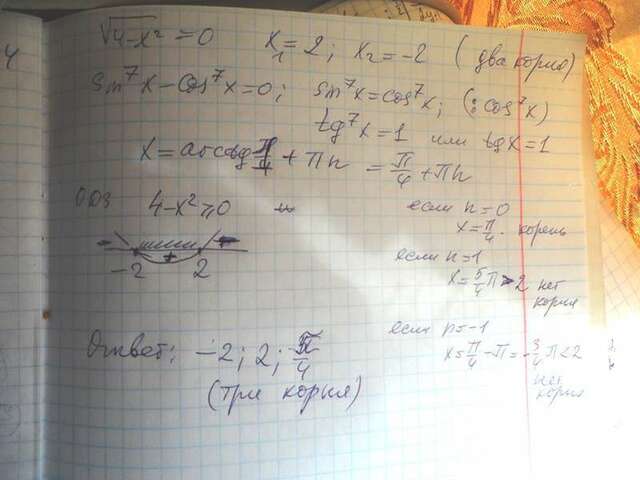 √4-x² = 0   x₁ = 2; x₂ = -2 (два корня)
sin⁷x - cos⁷x = 0; sin⁷x = cos⁷x; (: cos⁷x)
tg⁷x = 1 или tgx = 1
x = arctg + πn = π/4 + πn
ОДЗ 4-x² ≥ 0
если n = 0
x = π/4 - корень
+
-2 2
если n = 1
x = 5/4 π > 2 нет
корня
если n = -1
x = π/4 - π = -3/4 π < 2
нет
корня
Ответ: -2; 2; π/4
(три корня)